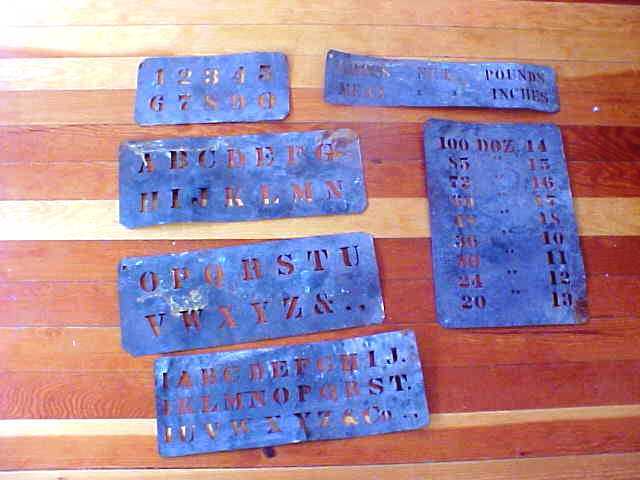 1 2 3 4 5
6 7 8 9 0
POUNDS
MEAS " " INCHES
A B C D E F G
H I J K L M N
O P Q R S T U
V W X Y Z & . ,
A B C D E F G H I J .
K L M N O P Q R S T .
U V W X Y Z & Co . ,
100 DOZ. 14
85 " 15
72 " 16
" 17
48 " 18
36 " 10
30 " 11
24 " 12
20 " 13